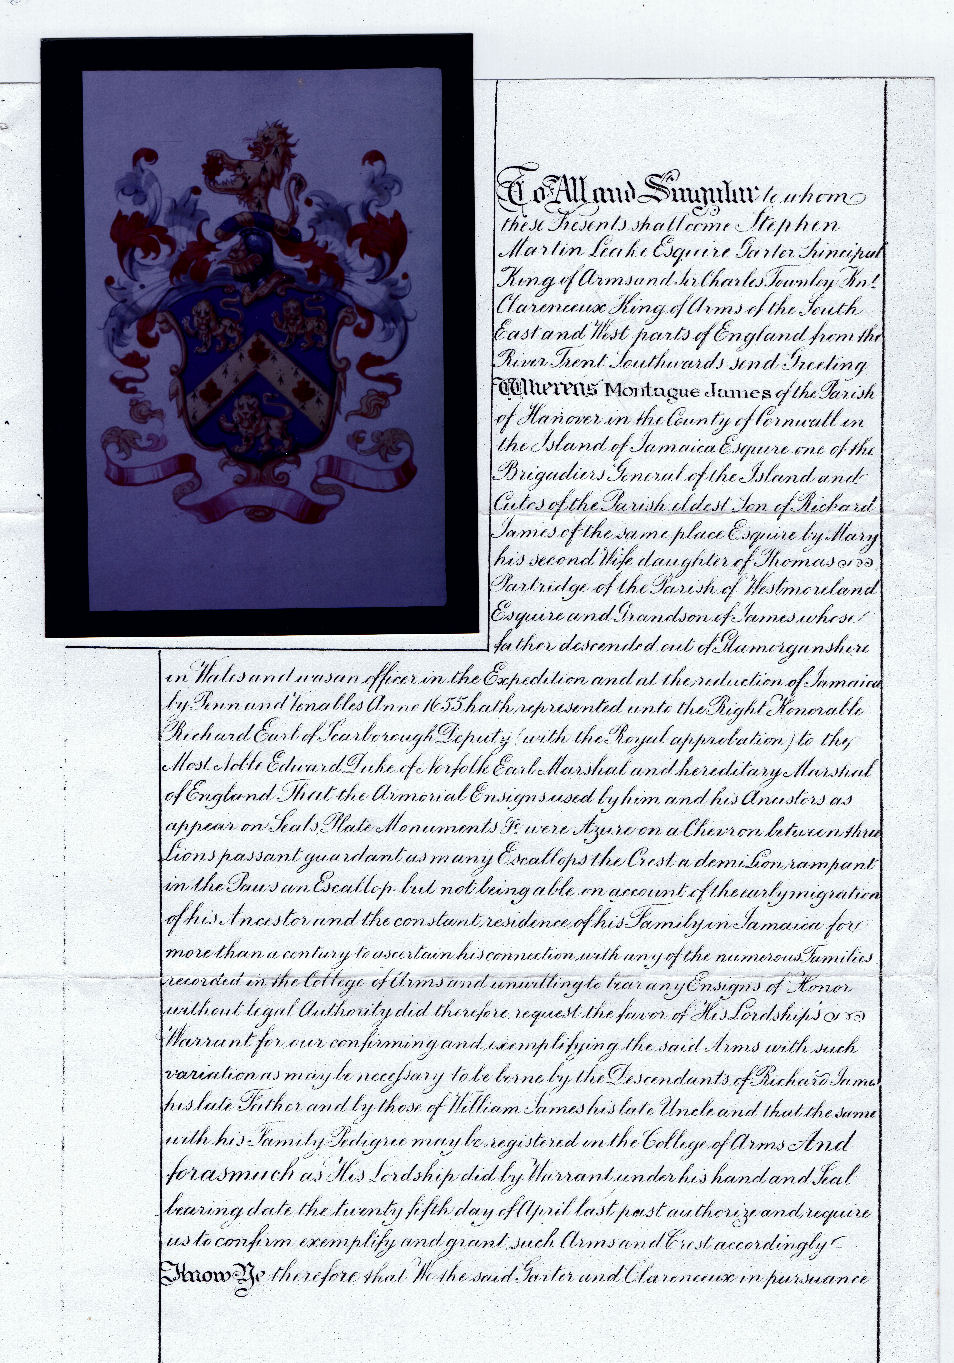 To All and Singular to whom
these Presents shall come Stephen
Martin Leake Esquire Garter Principal
King of Arms and Sir Charles Townley Knt.
Clarenceux King of Arms of the South
East and West parts of England from the
River Trent Southwards send Greeting
Whereas Montague James of the Parish
of Hanover in the County of Cornwall in
the Island of Jamaica Esquire one of the
Brigadiers General of the Island and
Custos of the Parish eldest Son of Richard
James of the same place Esquire by Mary
his second Wife daughter of Thomas
Partridge of the Parish of Westmoreland
Esquire and Grandson of James whose
father descended out of Glamorganshire
in Wales and was an officer in the Expedition and at the reduction of Jamaica
by Penn and Venables Anno 1655 hath represented unto the Right Honorable
Richard Earl of Scarborough Deputy (with the Royal approbation) to the
Most Noble Edward Duke of Norfolk Earl Marshal and hereditary Marshal
of England That the Armorial Ensigns used by him and his Ancestors as
appear on Seals, Plate Monuments &c. were Azure on a Chevron between three
Lions passant guardant as many Escallops the Crest a demi Lion rampant
in the Paws an Escallop but not being able on account of the early migration
of his Ancestor and the constant residence of his Family in Jamaica for
more than a century to ascertain his connection with any of the numerous Families
recorded in the College of Arms and unwilling to bear any Ensigns of Honor
without legal Authority did therefore request the favor of His Lordship's
Warrant for our confirming and exemplifying the said Arms with such
variation as may be necessary to be borne by the Descendants of Richard James
his late Father and by those of William James his late Uncle and that the same
with his Family Pedigree may be registered in the College of Arms And
forasmuch as His Lordship did by Warrant under his hand and Seal
bearing date the twenty fifth day of April last past authorize and require
us to confirm exemplify and grant such Arms and Crest accordingly
Know Ye therefore that We the said Garter and Clarenceux in pursuance